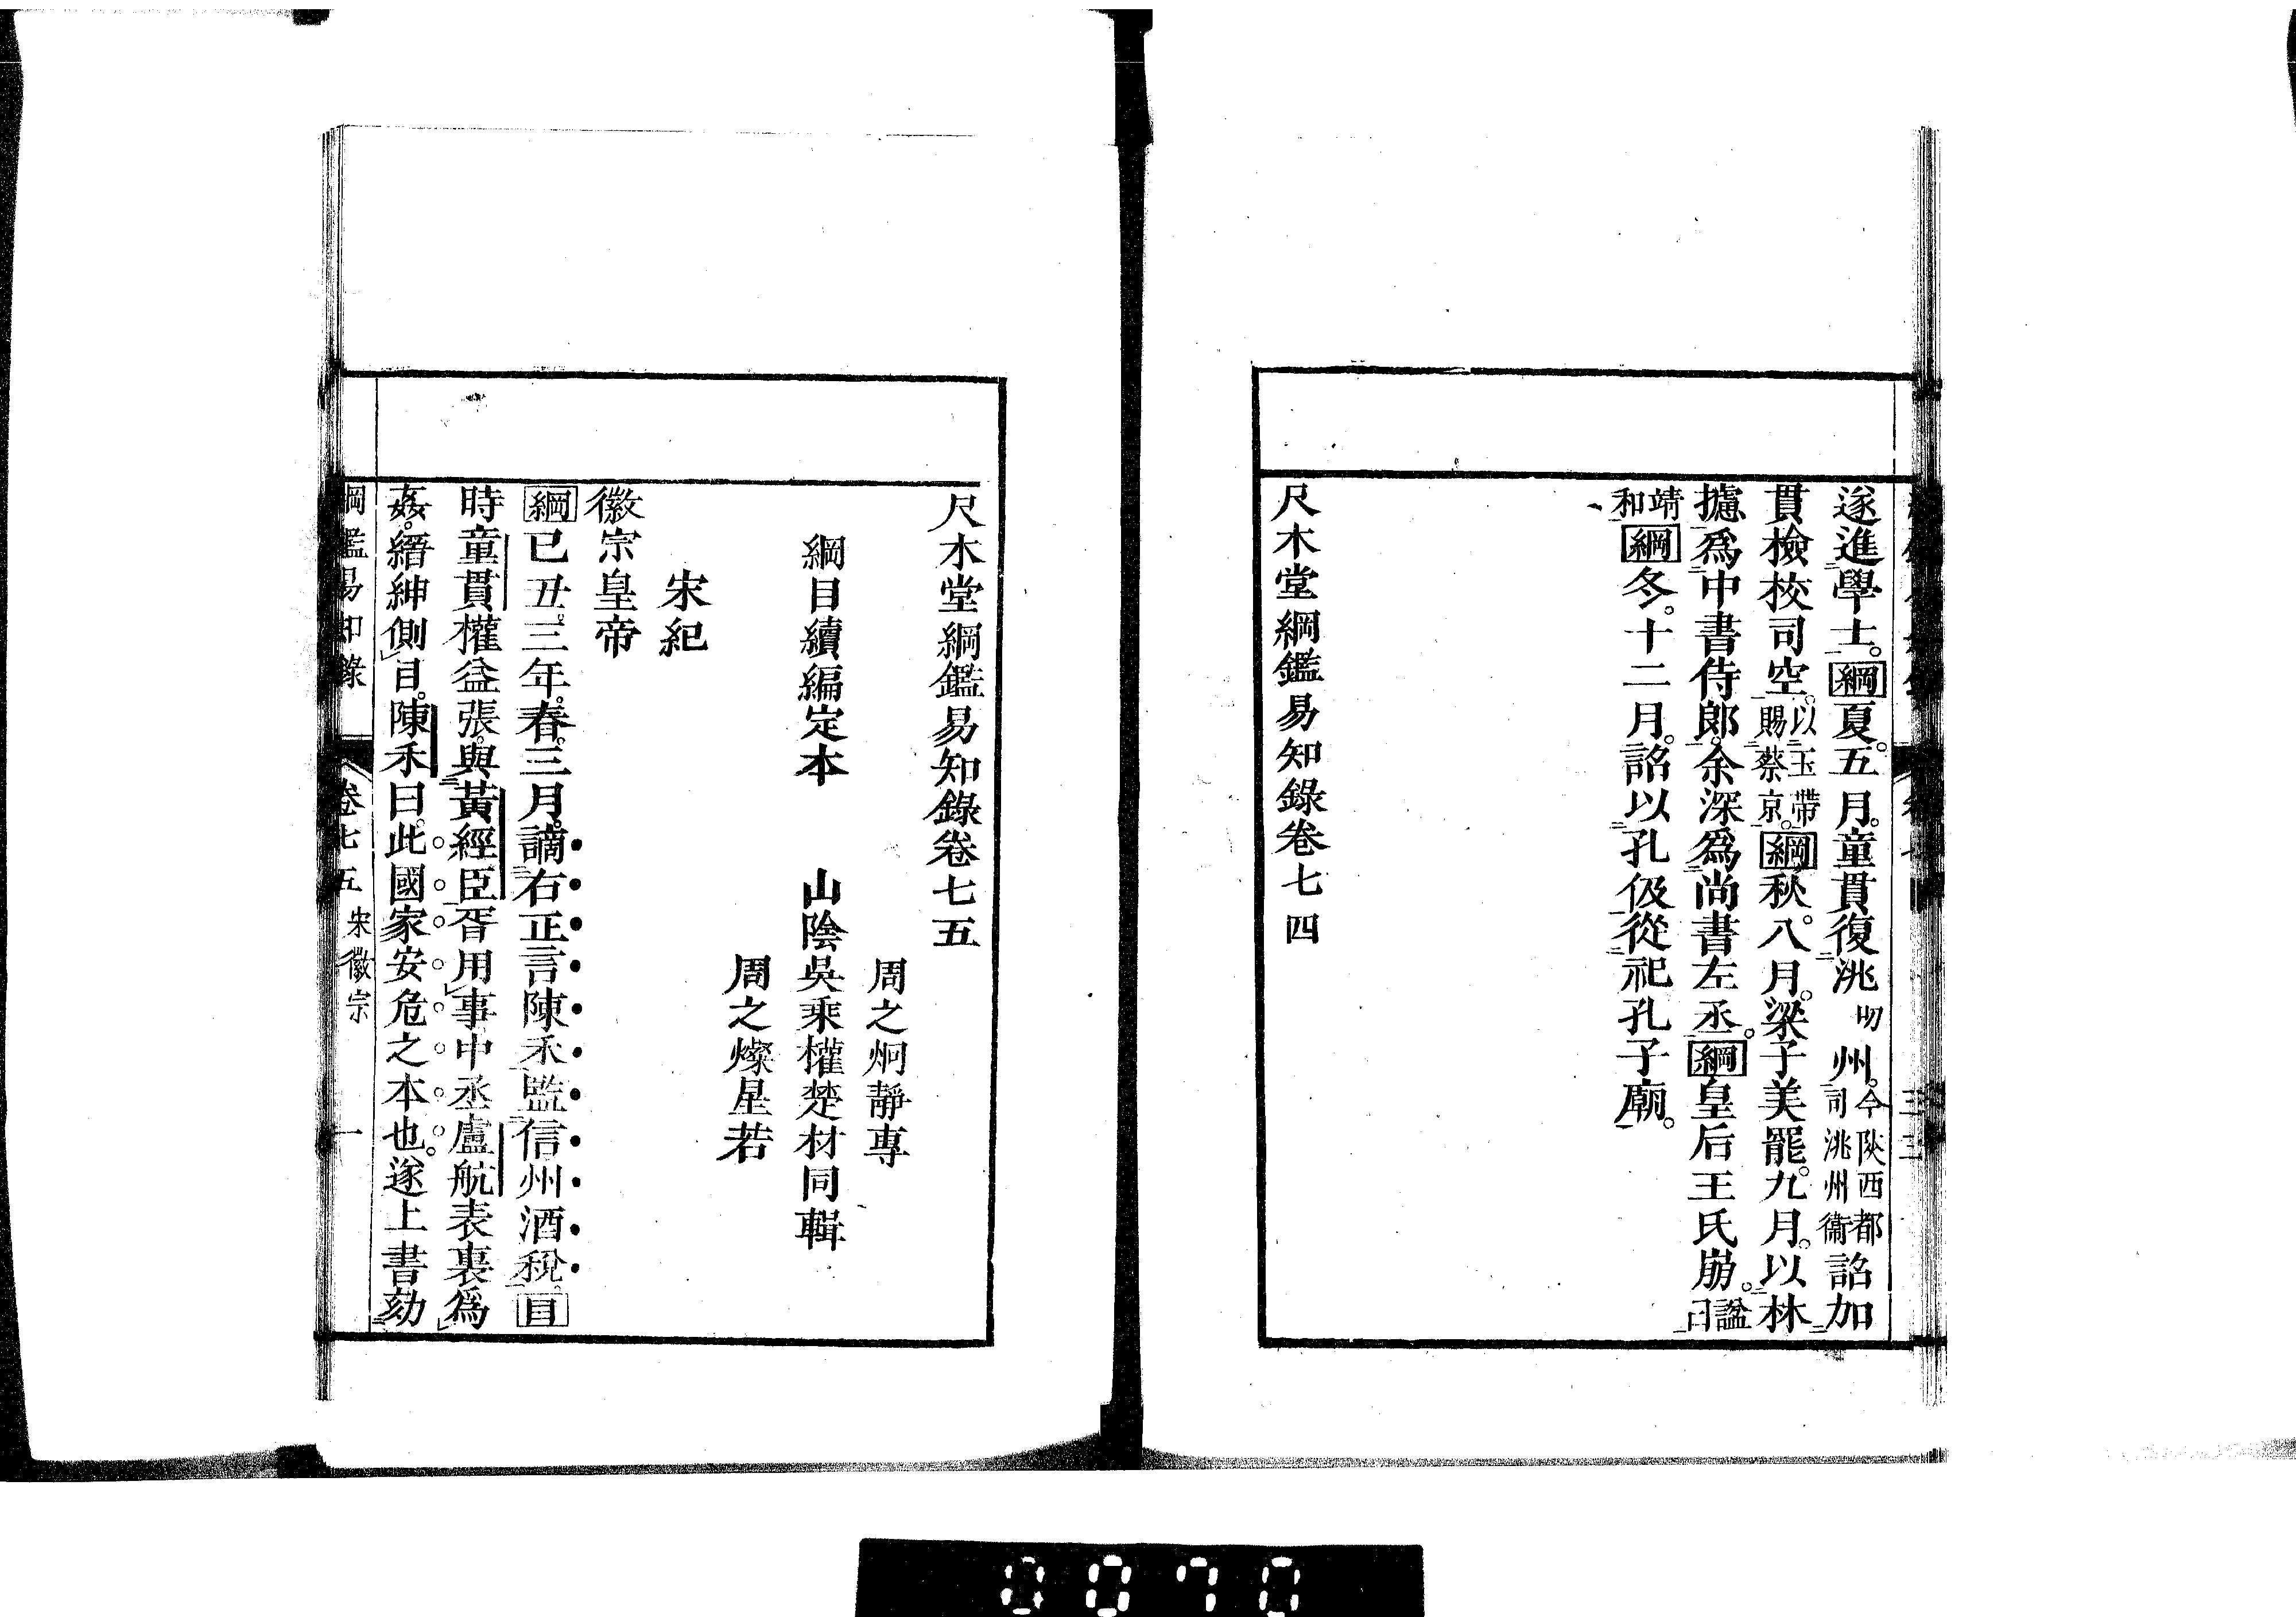 遂進學士。綱夏。五月。童貫復洮㕮州。今陝西都司洮州衞詔加
貫檢校司空。以玉帶賜蔡京。綱秋。八月。梁子美罷。九月。以林
攄爲中書侍郎。余深爲尚書左丞。綱皇后王氏崩。諡曰
靖和綱冬。十二月。詔以孔伋從祀孔子廟。
尺木堂綱鑑易知錄卷七四
尺木堂綱鑑易知錄卷七五
周之炯靜專
綱目續編定本 山陰吳乘權楚材同輯
周之燦星若
宋紀
徽宗皇帝
綱已丑。三年。春。三月。謫右正言陳禾監信州酒稅。目
時童貫權益張。與黃經臣胥用事中丞盧航表裏爲
姦。縉紳側目。陳禾曰。此國家安危之本也。遂上書劾
綱鑑易知錄 卷七五 宋徽宗 一
0070